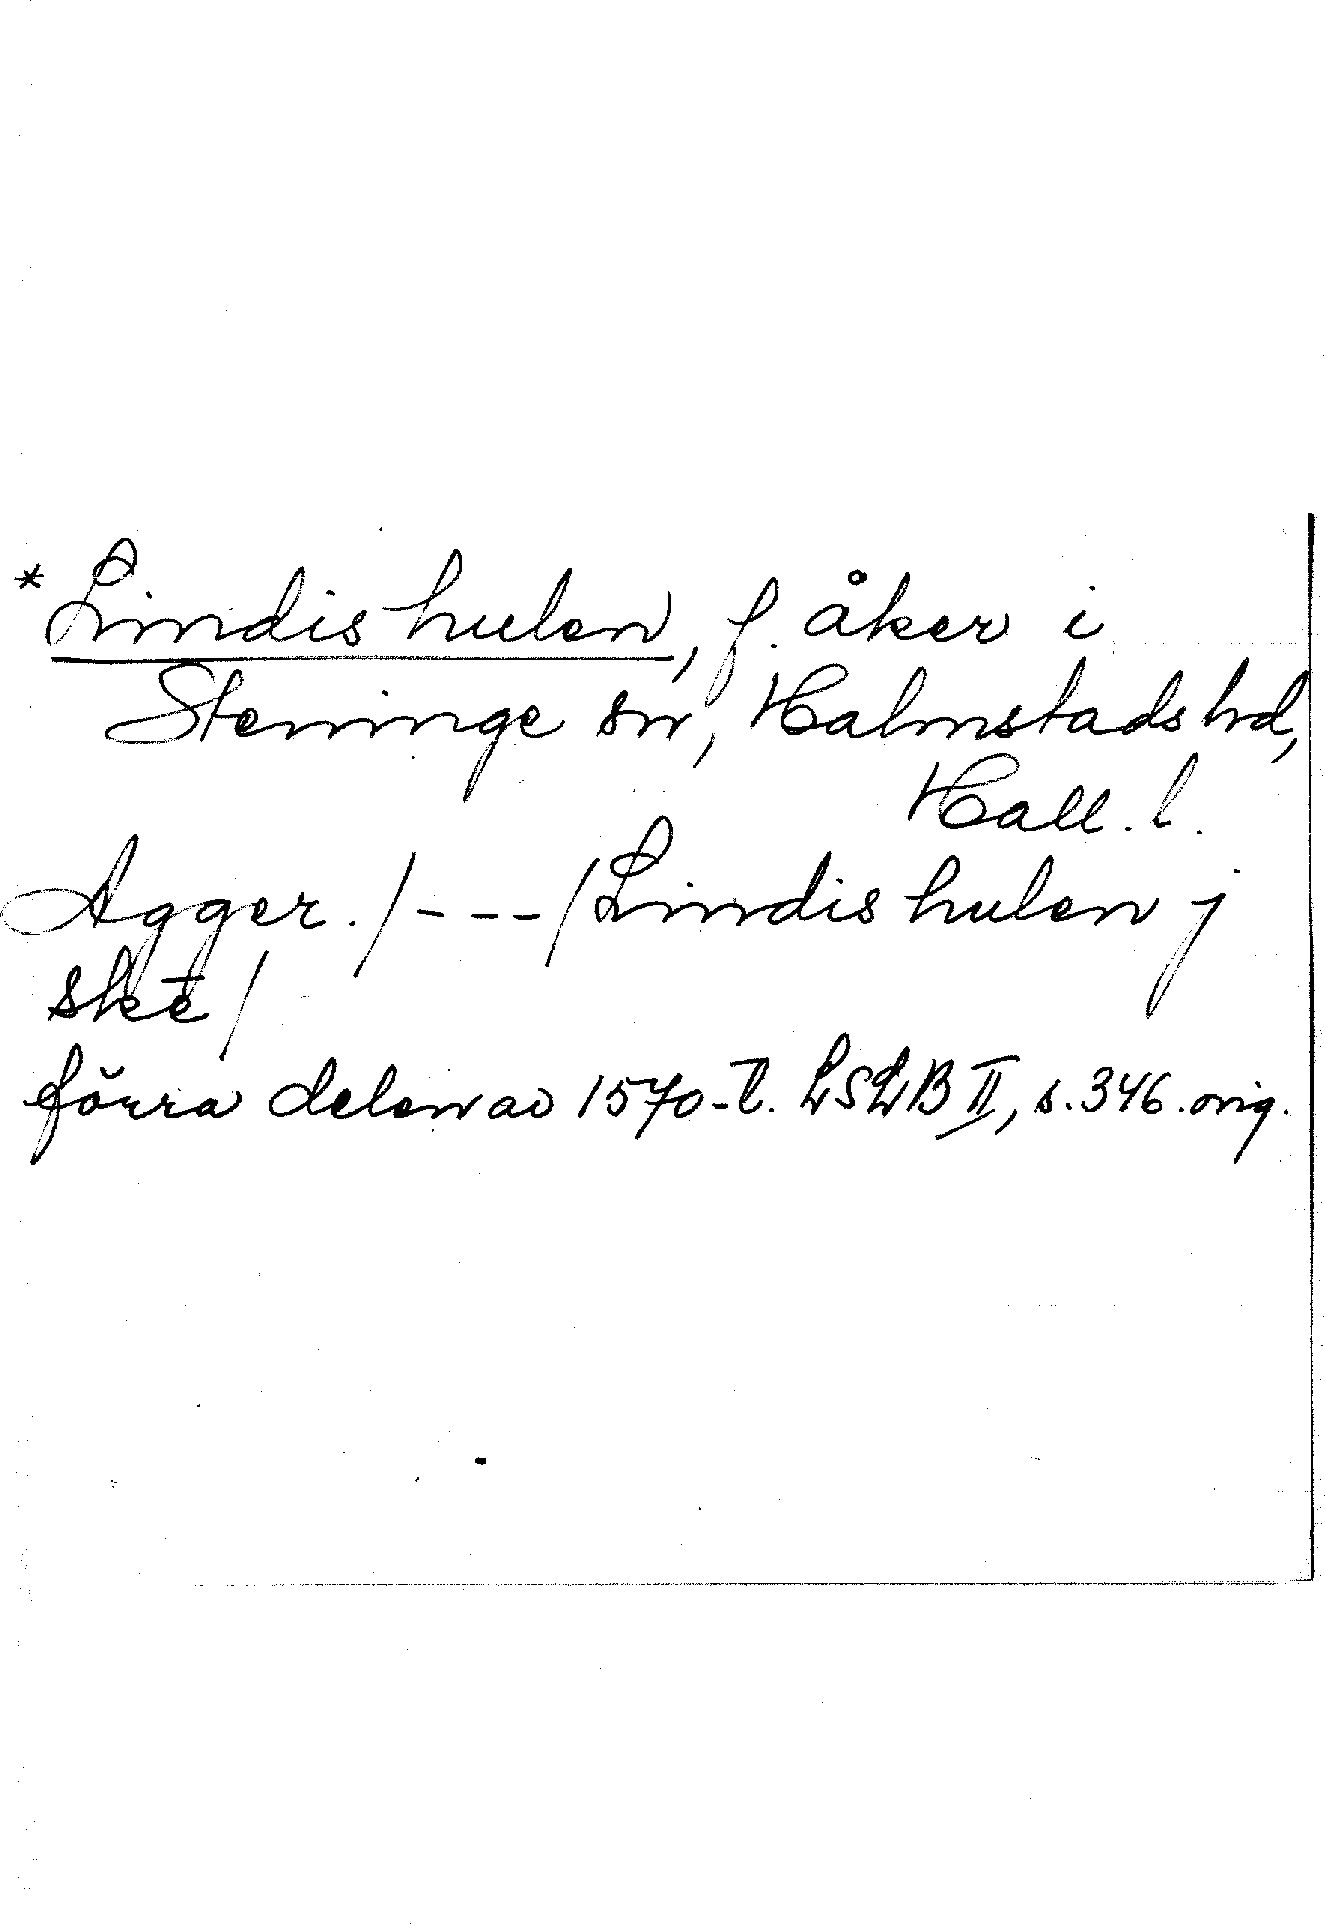 *Lindis hulen, f. åker i
Steninge sn, Halmstads hd,
Hall. l.
Agger. /---/ Lindis hulen j
skē/
förra delen av 1570-t. LSLB II, s. 346. orig.